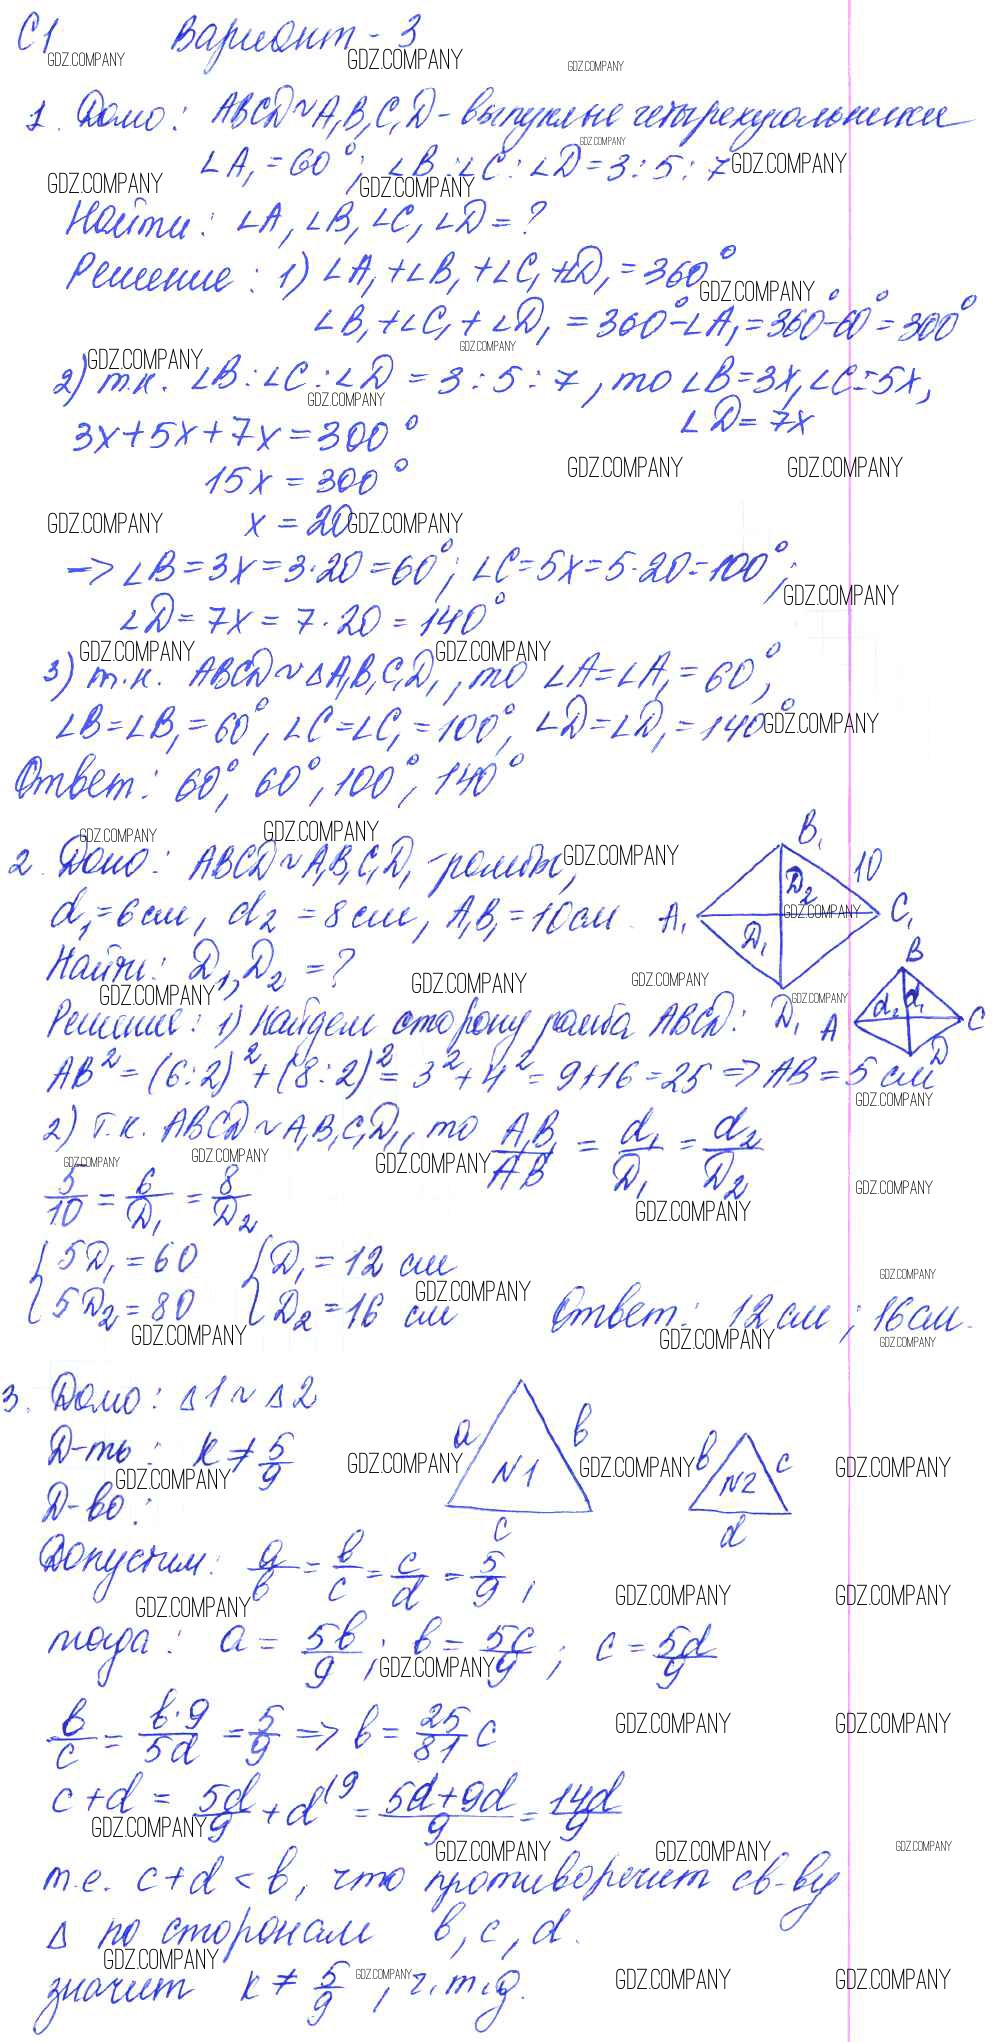 С1 Вариант - 3
GDZ.COMPANY GDZ.COMPANY GDZ.COMPANY
1. Дано: ABCD ~ A₁B₁C₁D - выпуклые четырехугольники
GDZ.COMPANY
∠A₁ = 60°; ∠B : ∠C : ∠D = 3 : 5 : 7 GDZ.COMPANY
GDZ.COMPANY GDZ.COMPANY
Найти: ∠A, ∠B, ∠C, ∠D = ?
Решение: 1) ∠A₁ + ∠B₁ + ∠C₁ + ∠D₁ = 360°
GDZ.COMPANY
∠B₁ + ∠C₁ + ∠D₁ = 360° - ∠A₁ = 360° - 60° = 300°
GDZ.COMPANY GDZ.COMPANY
2) т.к. ∠B : ∠C : ∠D = 3 : 5 : 7, то ∠B = 3x, ∠C = 5x,
GDZ.COMPANY
∠D = 7x
3x + 5x + 7x = 300°
15x = 300°
GDZ.COMPANY GDZ.COMPANY
GDZ.COMPANY x = 20 GDZ.COMPANY
=> ∠B = 3x = 3·20 = 60°; ∠C = 5x = 5·20 = 100°;
GDZ.COMPANY
∠D = 7x = 7·20 = 140°
GDZ.COMPANY GDZ.COMPANY
3) т.к. ABCD ~ △A₁B₁C₁D₁, то ∠A = ∠A₁ = 60°,
∠B = ∠B₁ = 60°, ∠C = ∠C₁ = 100°, ∠D = ∠D₁ = 140° GDZ.COMPANY
Ответ: 60°, 60°, 100°, 140°
GDZ.COMPANY GDZ.COMPANY
B₁
2. Дано: ABCD ~ A₁B₁C₁D₁ - ромбы, GDZ.COMPANY
10
D₂
d₁ = 6 см, d₂ = 8 см, A₁B₁ = 10 см. A₁ GDZ.COMPANY C₁
D₁
Найти: D₁, D₂ = ?
B
GDZ.COMPANY GDZ.COMPANY GDZ.COMPANY GDZ.COMPANY
d₂ d₁
Решение: 1) Найдем сторону ромба ABCD: D₁ A C
D
AB² = (6:2)² + (8:2)² = 3² + 4² = 9 + 16 = 25 => AB = 5 см
GDZ.COMPANY
2) т.к. ABCD ~ A₁B₁C₁D₁, то A₁B₁/AB = d₁/D₁ = d₂/D₂
GDZ.COMPANY GDZ.COMPANY GDZ.COMPANY GDZ.COMPANY
5/10 = 6/D₁ = 8/D₂
GDZ.COMPANY
{ 5D₁ = 60 { D₁ = 12 см
GDZ.COMPANY GDZ.COMPANY
5D₂ = 80 D₂ = 16 см Ответ: 12 см; 16 см.
GDZ.COMPANY GDZ.COMPANY GDZ.COMPANY
3. Дано: △1 ~ △2
a в
Д-ть: k ≠ 5/9
N1
в c
N2
GDZ.COMPANY GDZ.COMPANY GDZ.COMPANY GDZ.COMPANY
Д-во:
c d
Допустим: a/в = в/c = c/d = 5/9;
GDZ.COMPANY GDZ.COMPANY GDZ.COMPANY
тогда: a = 5в/9; в = 5c/9; c = 5d/9
GDZ.COMPANY
в/c = в·9/5d = 5/9 => в = 25/81 c
GDZ.COMPANY GDZ.COMPANY
c + d = 5d/9 + d⁽⁹ = 5d+9d/9 = 14d/9
GDZ.COMPANY
GDZ.COMPANY GDZ.COMPANY GDZ.COMPANY
т.е. c + d < в, что противоречит св-ву
△ по сторонам в, c, d.
GDZ.COMPANY
значит k ≠ 5/9, ч.т.д.
GDZ.COMPANY GDZ.COMPANY GDZ.COMPANY